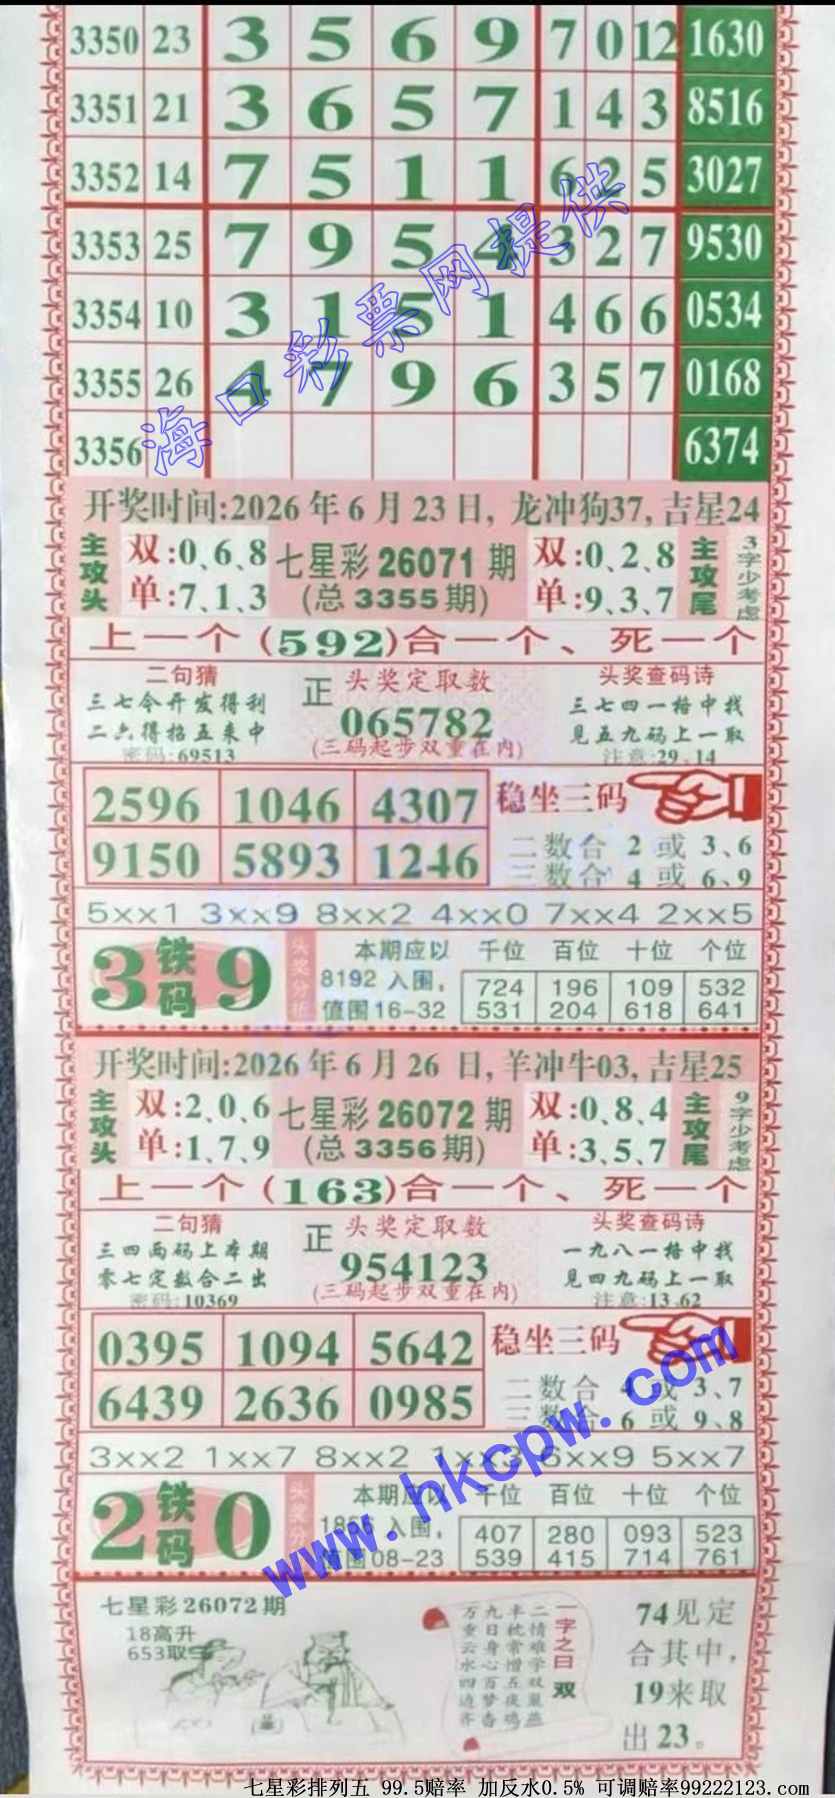 3350 23 3 5 6 9 7 0 12 1630
3351 21 3 6 5 7 1 4 3 8516
3352 14 7 5 1 1 6 2 5 3027
3353 25 7 9 5 4 3 2 7 9530
3354 10 3 1 5 1 4 6 6 0534
3355 26 4 7 9 6 3 5 7 0168
3356 6374
海口彩票网提供
开奖时间:2026年6月23日,龙冲狗37,吉星24
主攻头 双:0、6、8 七星彩 26071 期 双:0、2、8 主攻尾 3字少考虑
单:7、1、3 (总 3355 期) 单:9、3、7
上一个(592)合一个、死一个
二句猜 正 头奖定取数 头奖查码诗
三七今开发得利 065782 三七四一搭中找
二六得招五来中 (三码起步双重在内) 见五九码上一取
密码:69513 注意:29、14
2596 1046 4307 稳坐三码
9150 5893 1246 二数合 2 或 3、6
三数合 4 或 6、9
5xx1 3xx9 8xx2 4xx0 7xx4 2xx5
3 铁码 9 头奖分析 本期应以 千位 百位 十位 个位
8192 入围, 724 196 109 532
值围16-32 531 204 618 641
开奖时间:2026年6月26日,羊冲牛03,吉星25
主攻头 双:2、0、6 七星彩 26072 期 双:0、8、4 主攻尾 9字少考虑
单:1、7、9 (总 3356 期) 单:3、5、7
上一个(163)合一个、死一个
二句猜 正 头奖定取数 头奖查码诗
三四两码上本期 954123 一九八一搭中找
零七定数合二出 (三码起步双重在内) 见四九码上一取
密码:10369 注意:13、62
0395 1094 5642 稳坐三码
6439 2636 0985 二数合 4 或 3、7
三数合 6 或 9、8
3xx2 1xx7 8xx2 1xx3 6xx9 5xx7
2 铁码 0 头奖分 本期应以 千位 百位 十位 个位
1856 入围, 407 280 093 523
值围08-23 539 415 714 761
www.hkcpw.com
七星彩26072期
18高升
653取
一字之曰 双
二情难学双巢燕
半枕常憎五夜鸡
九日身心百梦香
万重云水四边齐
74见定
合其中,
19来取
出23。
七星彩排列五 99.5赔率 加反水0.5% 可调赔率99222123.com